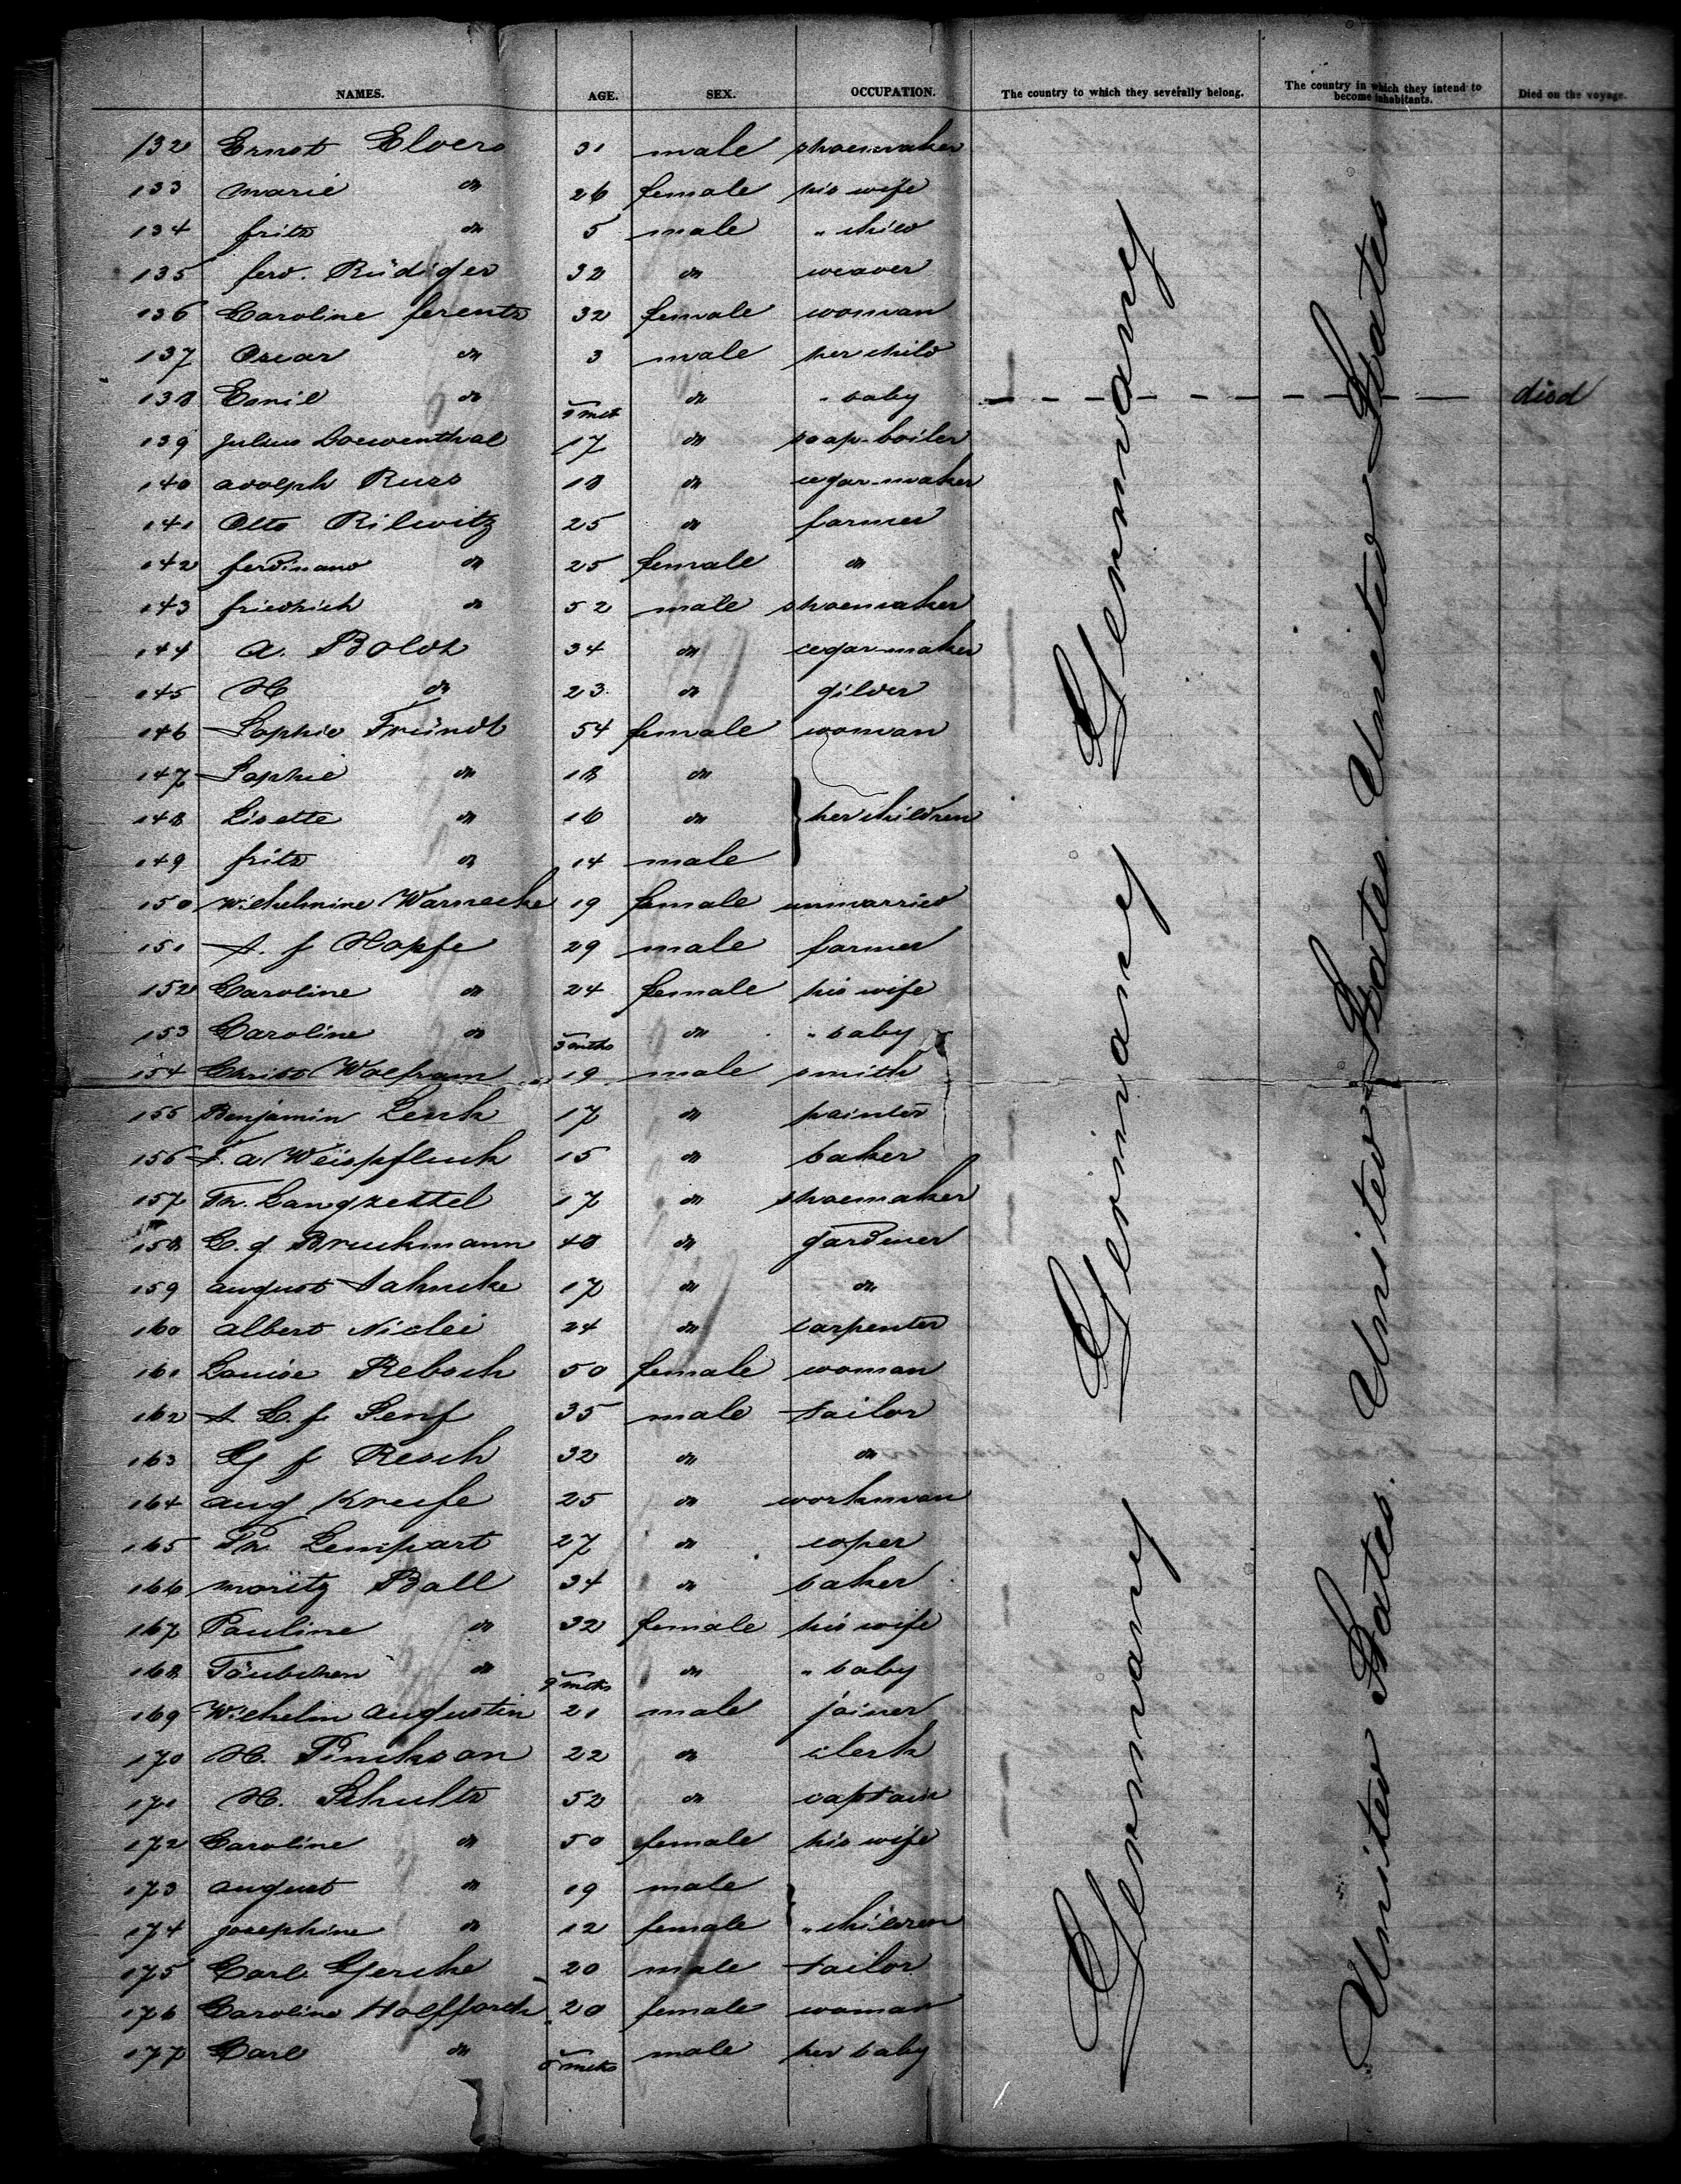 NAMES. AGE. SEX. OCCUPATION. The country to which they severally belong. The country in which they intend to become inhabitants. Died on the voyage.
132 Ernst Elvers 31 male shoemaker
133 Marie do 26 female his wife
134 fritz do 5 male " child
135 ferd. Rüdiger 32 do weaver
136 Caroline ferentz 32 female woman
137 Oscar do 3 male her child
138 Emil do mts do " baby died
139 Julius Loewenthal 17 do soap-boiler
140 Adolph Russ 18 do cegar-maker
141 Otto Rilwitz 25 do farmer
142 ferdinand do 25 female do
143 friedrich do 52 male shoemaker
144 A. Boldt 34 do cegar-maker
145 H do 23 do gilder
146 Sophie Fründt 54 female woman
147 Sophie do 18 do
148 Lisette do 16 do her children
149 fritz do 14 male
150 Wilhelmine Warnecke 19 female unmarried
151 A. f Hopfe 29 male farmer
152 Caroline do 24 female his wife
153 Caroline do 3 mths do " baby
154 Christ Wolfram 19 male smith
155 Benjamin Lenk 17 do painter
156 F. A Weispfluck 15 do baker
157 Th. Langzettel 17 do shoemaker
158 C. g Bruckmann 48 do gardener
159 August 17 do do
160 Albert Niclei 24 do carpenter
161 Louise Rebsch 50 female woman
162 A C. f Senf 35 male tailor
163 G f Resch 32 do do
164 Aug Kreufe 25 do workman
165 Th Lempart 27 do coper
166 Moritz Ball 34 do baker
167 Pauline do 32 female his wife
168 Täubchen do 9 mths do " baby
169 Wilhelm Augustin 21 male joiner
170 H. Pinckson 22 do clerk
171 H. Schultz 52 do captain
172 Caroline do 50 female his wife
173 August do 19 male
174 Josephine do 12 female " children
175 Carl Gercke 20 male tailor
176 Caroline 20 female woman
177 Carl do mths male her baby
Germany Germany Germany
United States. United States. United States